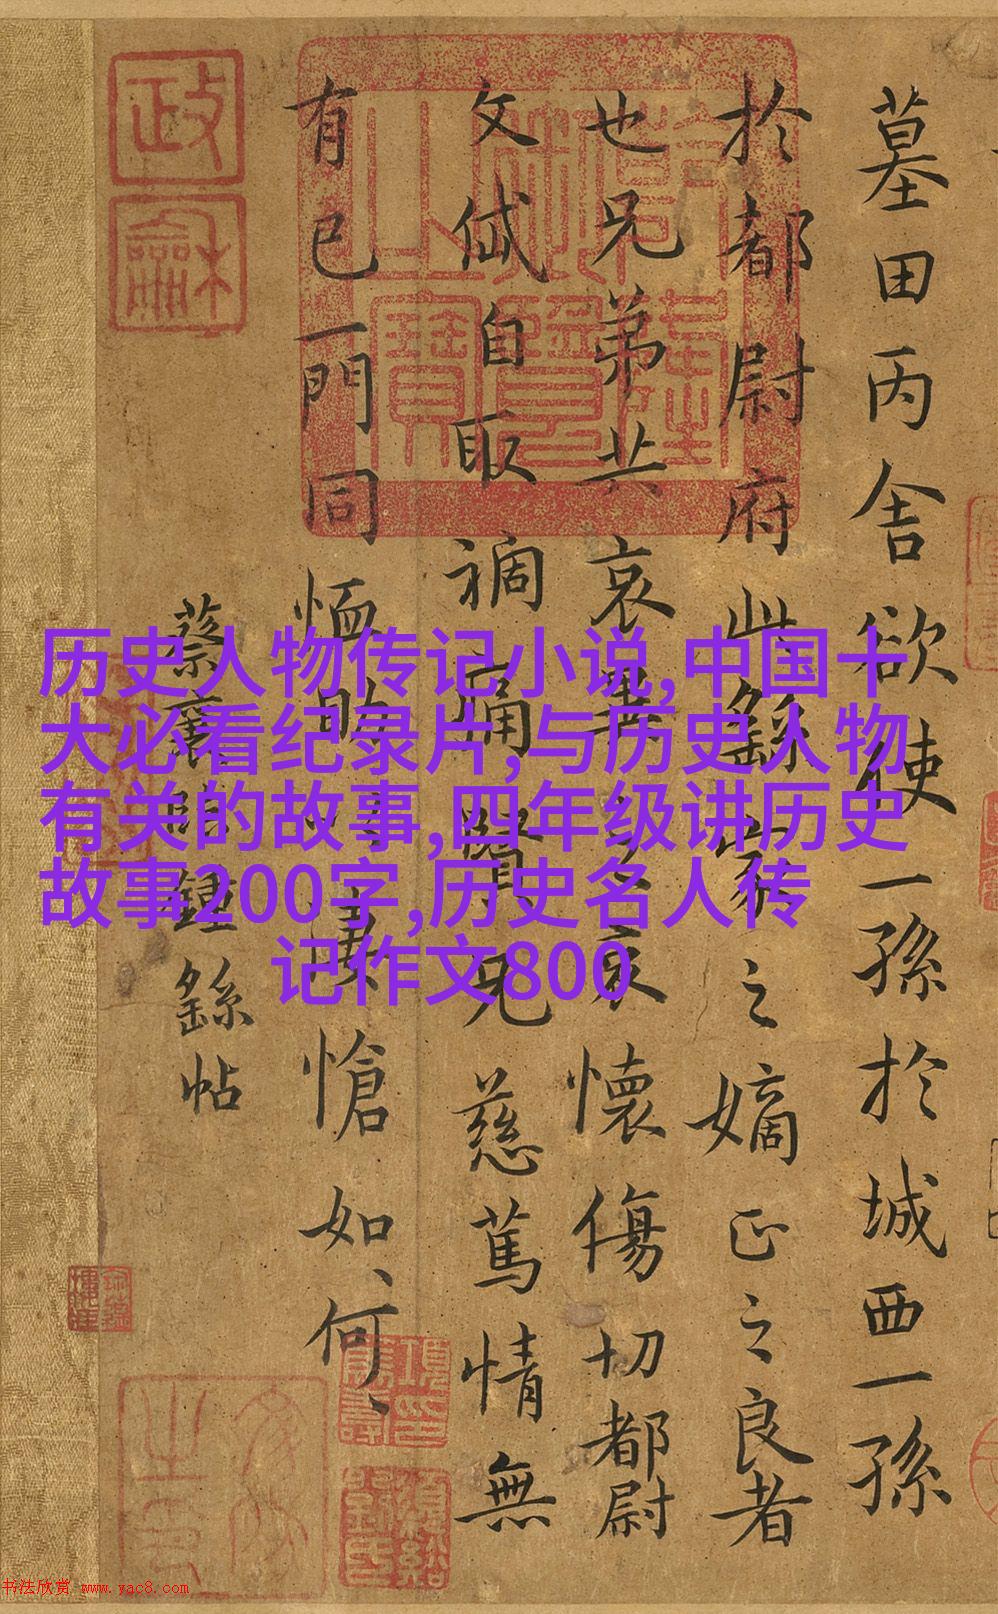 墓田丙舍欲使一孫於城西一孫
於都尉府此繇家之嫡正之良者
也兄弟共哀異之哀懷傷切都尉
文岱自取禍痛賢兄慈篤情無
有已一門同恤助以悽愴如、何、
蔡襄臨鍾繇帖
政龢
历史人物传记小说,中国十
大必看纪录片,与历史人物
有关的故事,四年级讲历史
故事200字,历史名人传
记作文800
书法欣赏 www.yac8.com